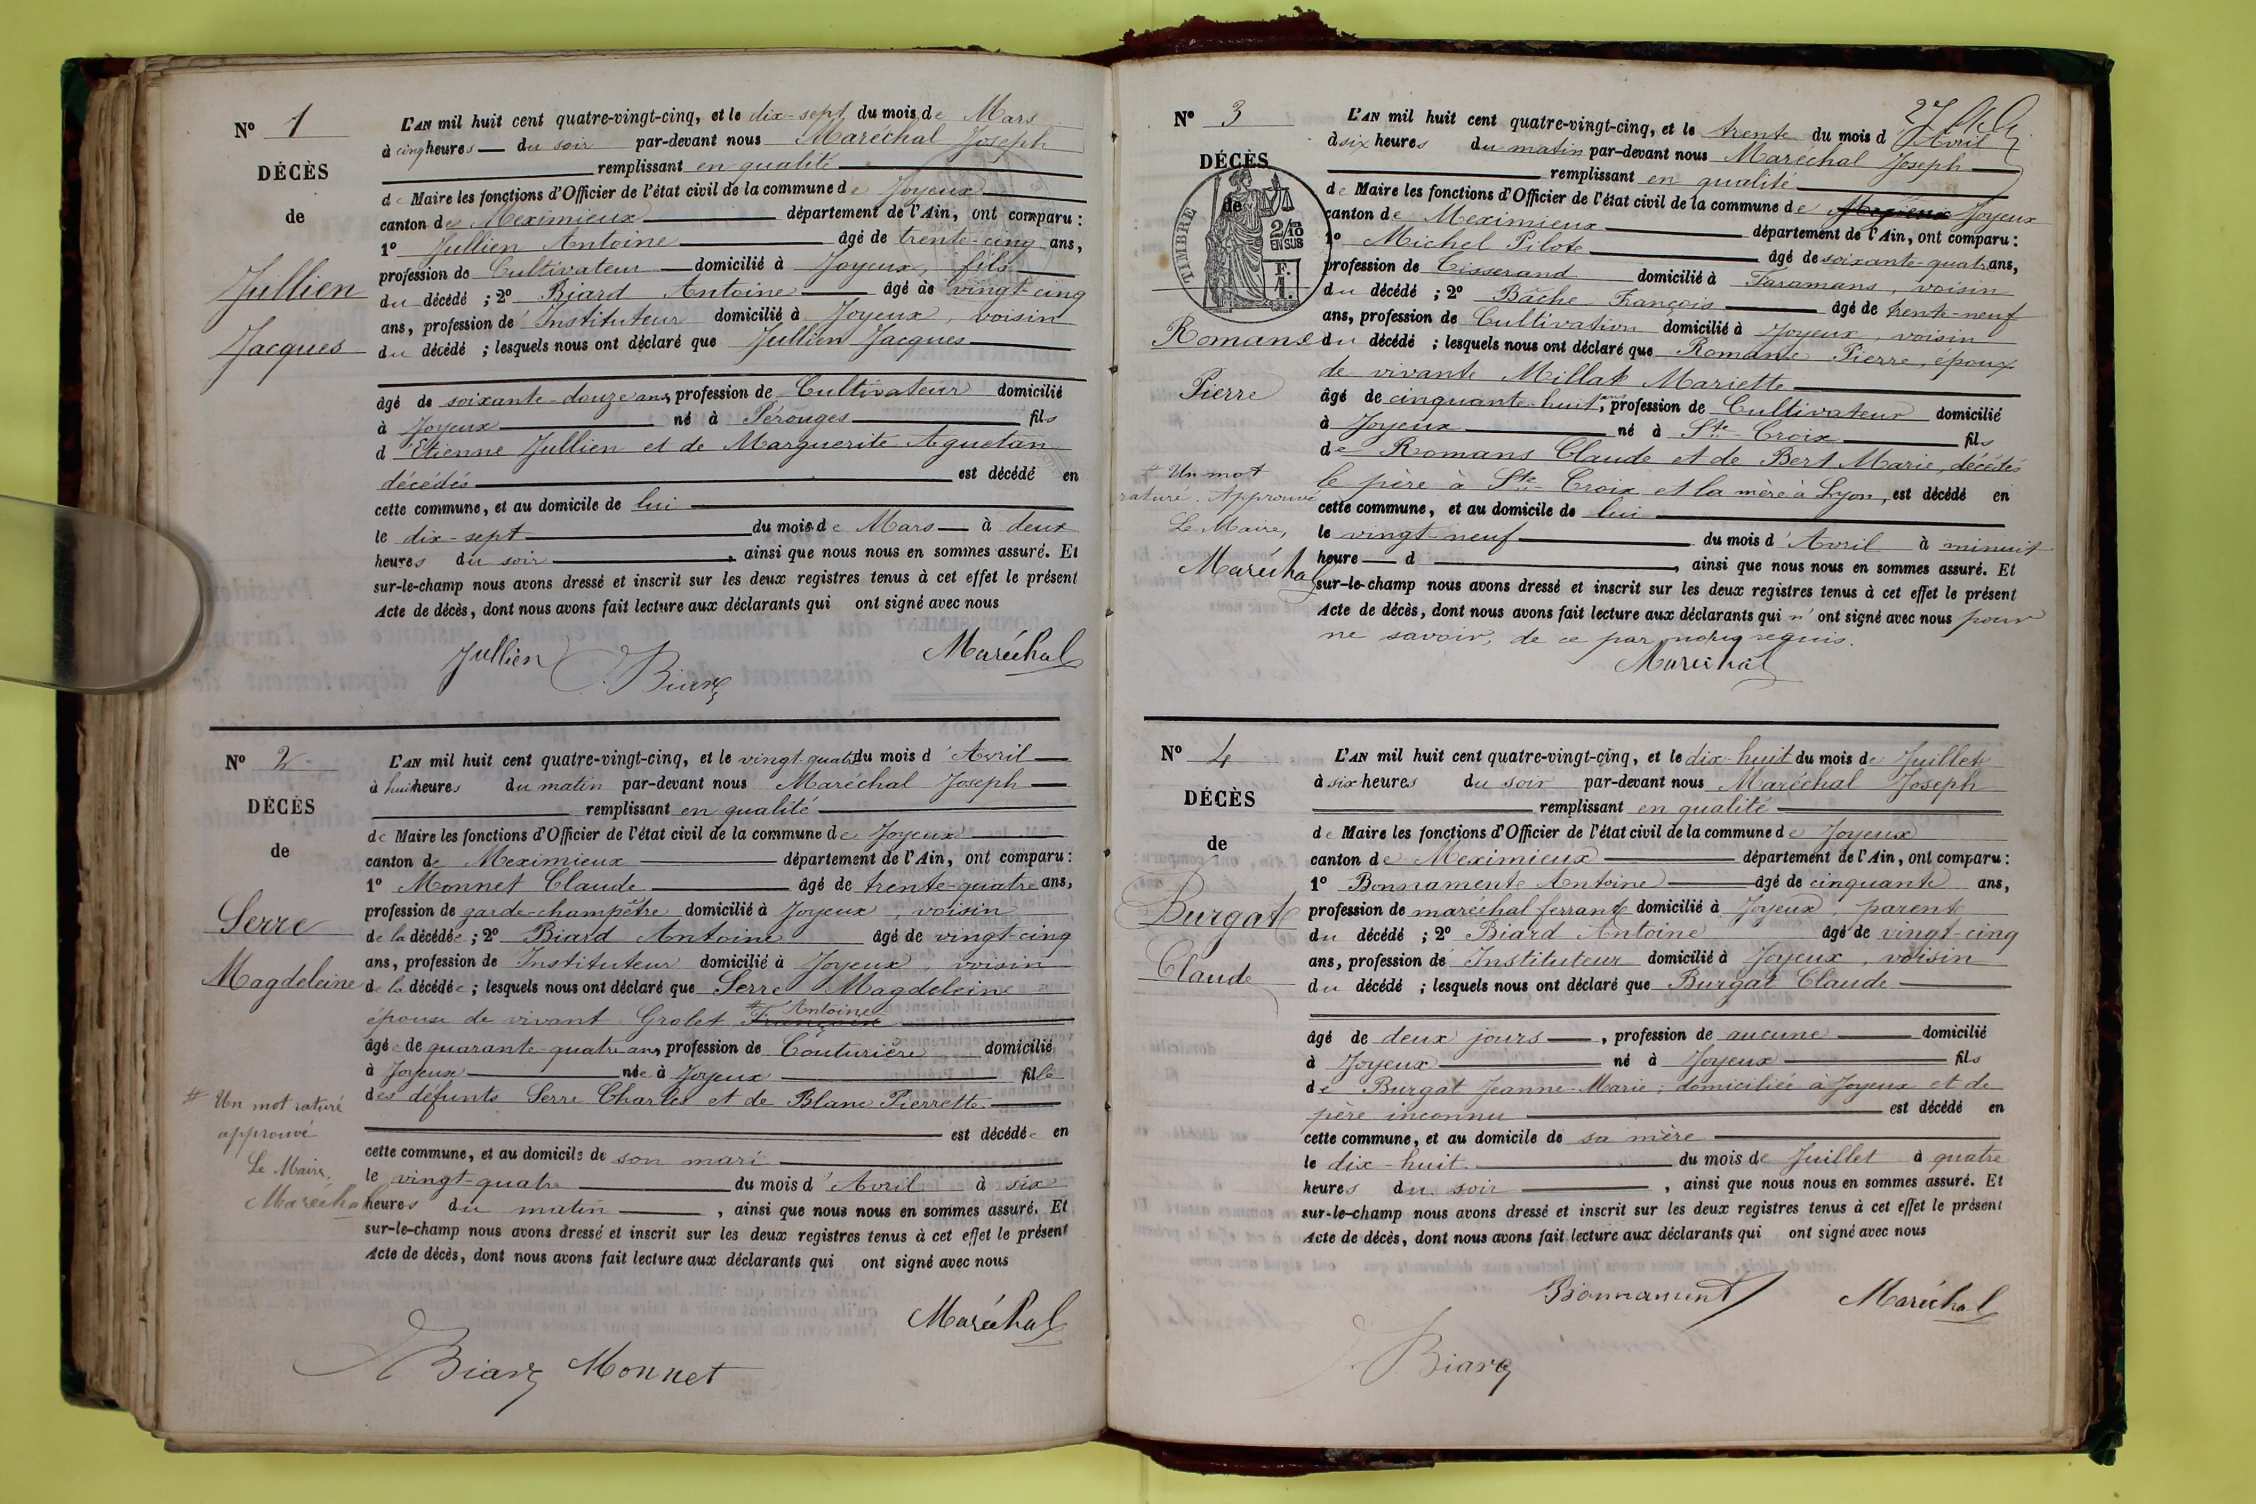 N° 1
DÉCÈS
de
Jullien
Jacques
L'AN mil huit cent quatre-vingt-cinq, et le dix-sept du mois de Mars
à cinq heures du soir par-devant nous Maréchal Joseph
remplissant en qualité
de Maire les fonctions d'Officier de l'état civil de la commune de Joyeux
canton de Meximieux département de l'Ain, ont comparu :
1° Jullien Antoine âgé de trente-cinq ans,
profession de Cultivateur domicilié à Joyeux, fils
du décédé ; 2° Biard Antoine âgé de vingt-cinq
ans, profession de Instituteur domicilié à Joyeux, voisin
du décédé ; lesquels nous ont déclaré que Jullien Jacques
âgé de soixante-douze ans, profession de Cultivateur domicilié
à Joyeux né à Pérouges fils
d'Etienne Jullien et de Marguerite Aguetan
décédés est décédé en
cette commune, et au domicile de lui
le dix-sept du mois de Mars à deux
heures du soir, ainsi que nous nous en sommes assuré. Et
sur-le-champ nous avons dressé et inscrit sur les deux registres tenus à cet effet le présent
Acte de décès, dont nous avons fait lecture aux déclarants qui ont signé avec nous
Jullien Biard Maréchal
N° 2
DÉCÈS
de
Serre
Magdeleine
# Un mot raturé
approuvé
Le Maire,
Maréchal
L'AN mil huit cent quatre-vingt-cinq, et le vingt-quatre du mois d'Avril
à huit heures du matin par-devant nous Maréchal Joseph
remplissant en qualité
de Maire les fonctions d'Officier de l'état civil de la commune de Joyeux
canton de Meximieux département de l'Ain, ont comparu :
1° Monnet Claude âgé de trente-quatre ans,
profession de garde-champêtre domicilié à Joyeux, voisin
de la décédée ; 2° Biard Antoine âgé de vingt-cinq
ans, profession de Instituteur domicilié à Joyeux, voisin
de la décédée ; lesquels nous ont déclaré que Serre Magdeleine
# Antoine
épouse de vivant Grolet François
âgée de quarante-quatre ans, profession de Couturière domicilié
à Joyeux née à Joyeux fille
des défunts Serre Charles et de Blanc Pierrette
est décédée en
cette commune, et au domicile de son mari
le vingt-quatre du mois d'Avril à six
heures du matin, ainsi que nous nous en sommes assuré. Et
sur-le-champ nous avons dressé et inscrit sur les deux registres tenus à cet effet le présent
Acte de décès, dont nous avons fait lecture aux déclarants qui ont signé avec nous
Maréchal
Biard Monnet
N° 3
DÉCÈS
de
TIMBRE
2/10
EN SUS
F.
1.
Romans
Pierre
# Un mot
raturé. Approuvé
Le Maire,
Maréchal
L'AN mil huit cent quatre-vingt-cinq, et le trente du mois d'Avril
à six heures du matin par-devant nous Maréchal Joseph
remplissant en qualité
de Maire les fonctions d'Officier de l'état civil de la commune de Joyeux
canton de Meximieux département de l'Ain, ont comparu :
1° Michel Pilote âgé de soixante-quatre ans,
profession de Tisserand domicilié à Faramans, voisin
du décédé ; 2° Bâche François âgé de trente-neuf
ans, profession de Cultivation domicilié à Joyeux, voisin
du décédé ; lesquels nous ont déclaré que Romans Pierre, époux
de vivante Millat Mariette
âgé de cinquante-huit ans, profession de Cultivateur domicilié
à Joyeux né à Ste-Croix fils
de Romans Claude et de Bert Marie, décédés
le père à Ste-Croix et la mère à Lyon, est décédé en
cette commune, et au domicile de lui
le vingt-neuf du mois d'Avril à minuit
heure d , ainsi que nous nous en sommes assuré. Et
sur-le-champ nous avons dressé et inscrit sur les deux registres tenus à cet effet le présent
Acte de décès, dont nous avons fait lecture aux déclarants qui n'ont signé avec nous pour
ne savoir, de ce par nous requis.
Maréchal
N° 4
DÉCÈS
de
Burgat
Claude
L'AN mil huit cent quatre-vingt-cinq, et le dix-huit du mois de Juillet
à six heures du soir par-devant nous Maréchal Joseph
remplissant en qualité
de Maire les fonctions d'Officier de l'état civil de la commune de Joyeux
canton de Meximieux département de l'Ain, ont comparu :
1° Bonnamente Antoine âgé de cinquante ans,
profession de maréchal ferrant domicilié à Joyeux, parent
du décédé ; 2° Biard Antoine âgé de vingt-cinq
ans, profession de Instituteur domicilié à Joyeux, voisin
du décédé ; lesquels nous ont déclaré que Burgat Claude
âgé de deux jours, profession de aucune domicilié
à Joyeux né à Joyeux fils
de Burgat Jeanne-Marie, domiciliée à Joyeux et de
père inconnu est décédé en
cette commune, et au domicile de sa mère
le dix-huit du mois de Juillet à quatre
heures du soir, ainsi que nous nous en sommes assuré. Et
sur-le-champ nous avons dressé et inscrit sur les deux registres tenus à cet effet le présent
Acte de décès, dont nous avons fait lecture aux déclarants qui ont signé avec nous
Bonnament Maréchal
Biard